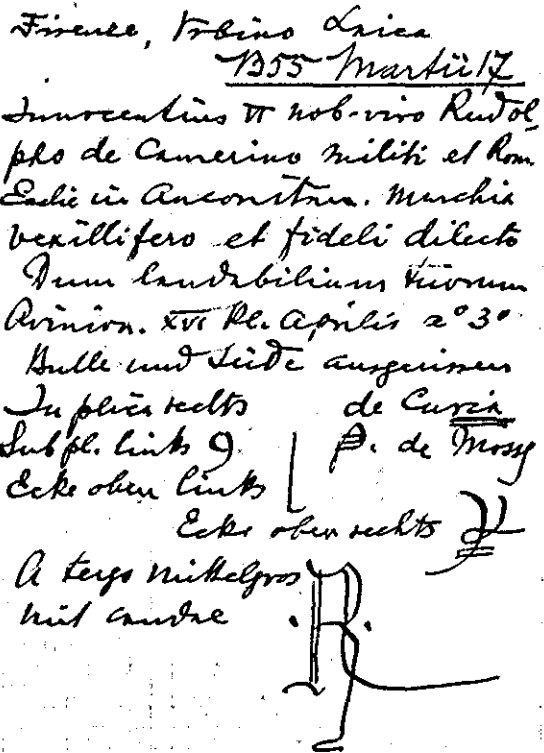 Firenze, Urbino Laica
1355 Martii 17
Innocentius VI nob. viro Rudol-
pho de Camerino militi et Rom.
Ecclie in Anconitan. Marchia
vexillifero et fideli dilecto
Dum laudabilium tuorum
Avinion. XVI Kl. Aprilis a° 3°
Bulle und Seide ausgerissen
In plica rechts de Curia
Sub pl. links P. de Mossy
Ecke oben links
Ecke oben rechts
A tergo mittelgros R.
mit caudae